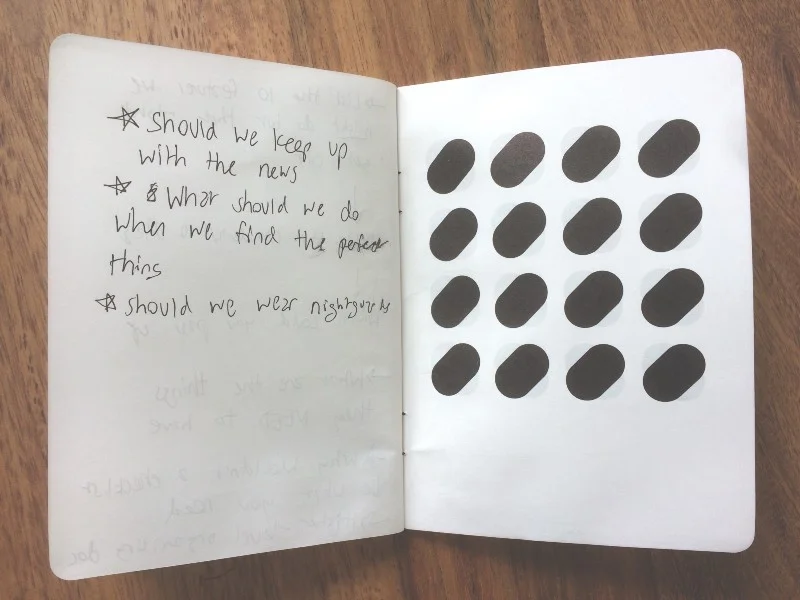 Should we keep up
with the news
What should we do
when we find the perfect
thing
Should we wear nightguards